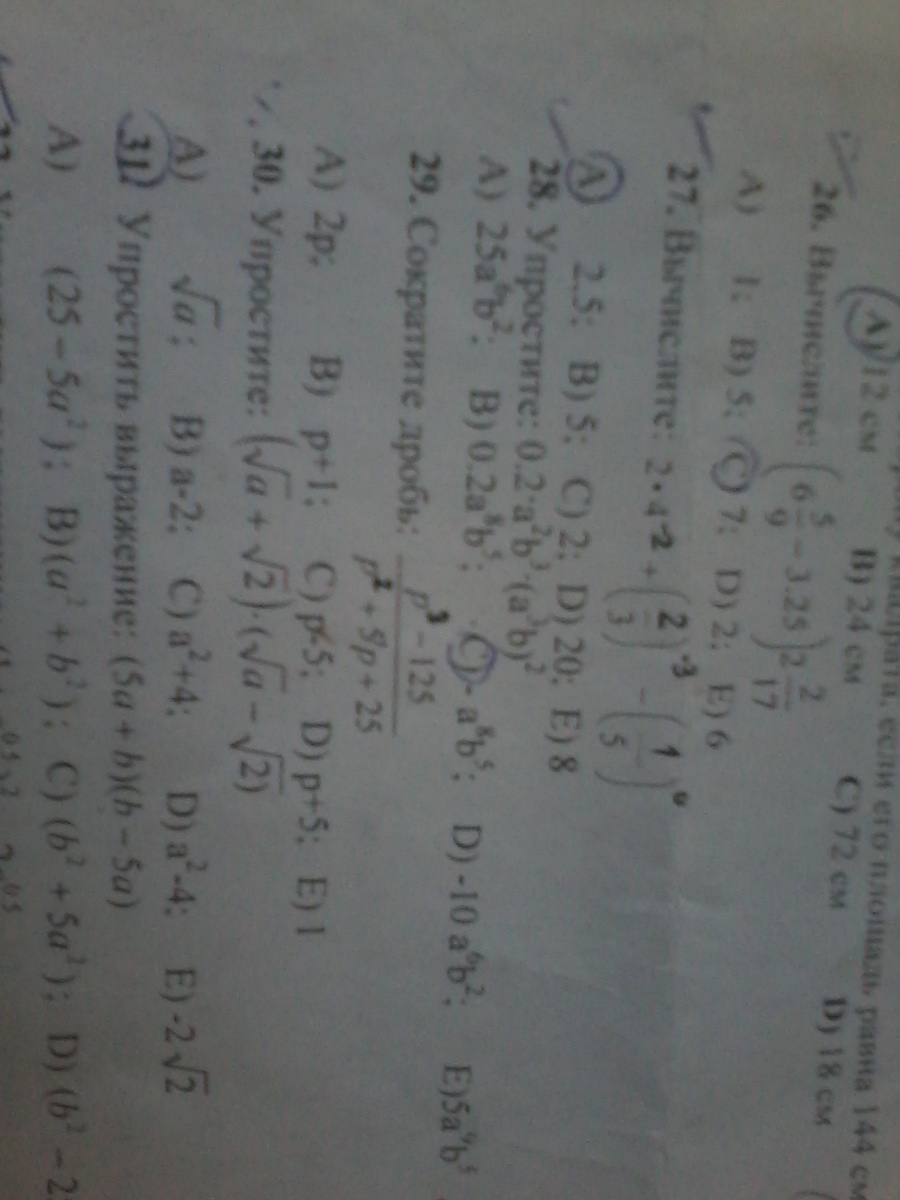 квадрата, если его площадь равна 144 см
A) 12 см B) 24 см C) 72 см D) 18 см
26. Вычислите: (6 5/9 − 3.25) 2 2/17
A) 1; B) 5; C) 7; D) 2; E) 6
27. Вычислите: 2·4⁻² + (2/3)⁻³ − (1/5)⁰
A) 2.5; B) 5; C) 2; D) 20; E) 8
28. Упростите: 0.2·a²b³·(a³b)²
A) 25a⁶b²; B) 0.2a⁸b⁵; C) - a⁸b⁵; D) -10 a⁶b²; E) 5a⁹b⁵
29. Сократите дробь: (p³ − 125)/(p² + 5p + 25)
A) 2p; B) p+1; C) p-5; D) p+5; E) 1
30. Упростите: (√a + √2)·(√a − √2)
A) √a; B) a-2; C) a²+4; D) a²-4; E) -2√2
31. Упростить выражение: (5a + b)(b − 5a)
A) (25 − 5a²); B) (a² + b²); C) (b² + 5a²); D) (b² − 2